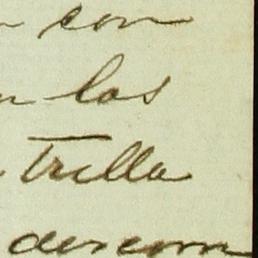 con
los
Trilla
descom